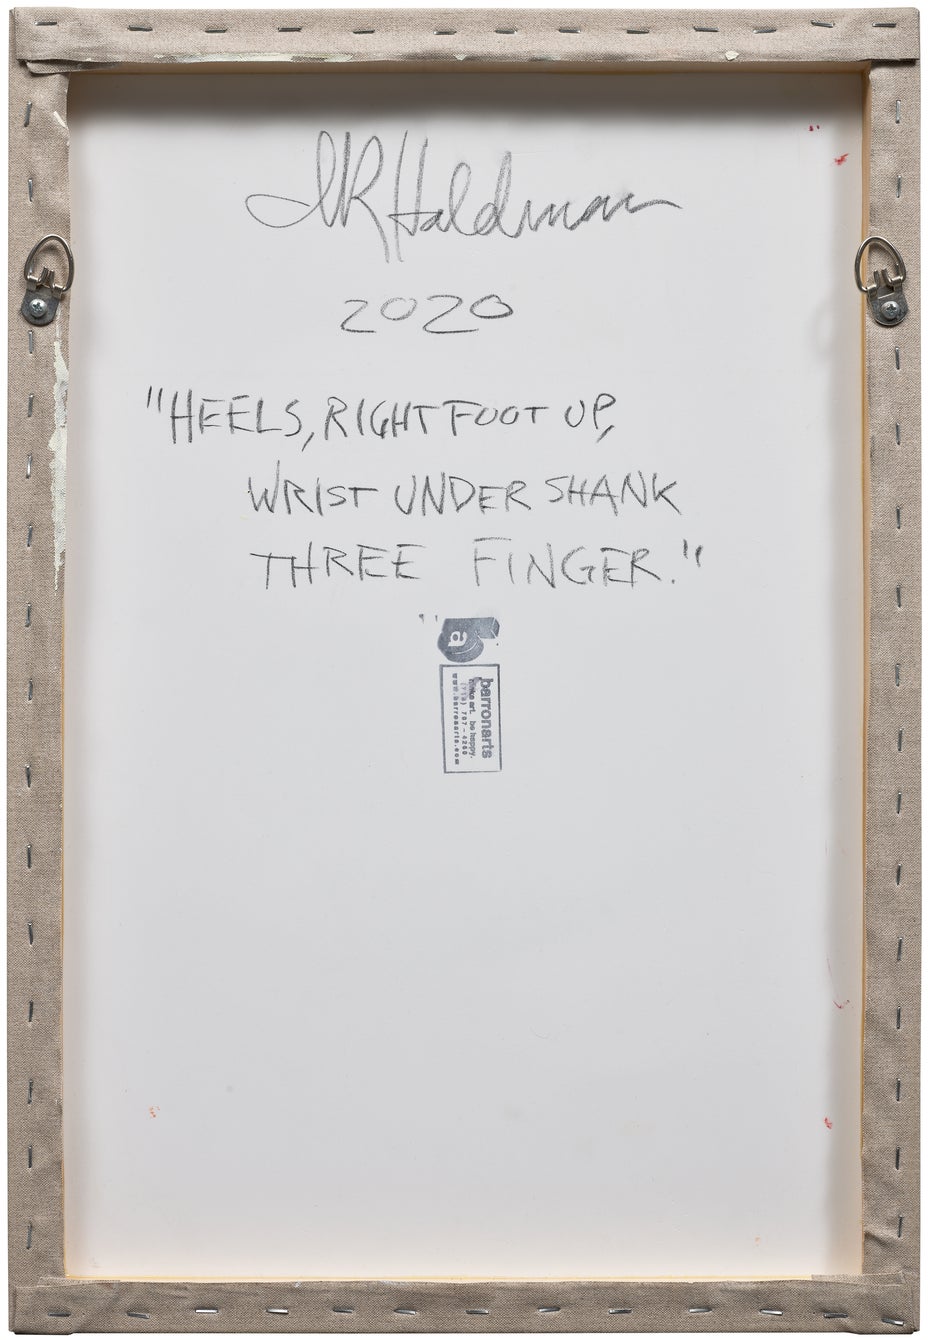 JR Haldeman
2020
"HEELS, RIGHT FOOT UP,
WRIST UNDER SHANK
THREE FINGER."
a
barronarts
make art. be happy.
www.barronarts.com